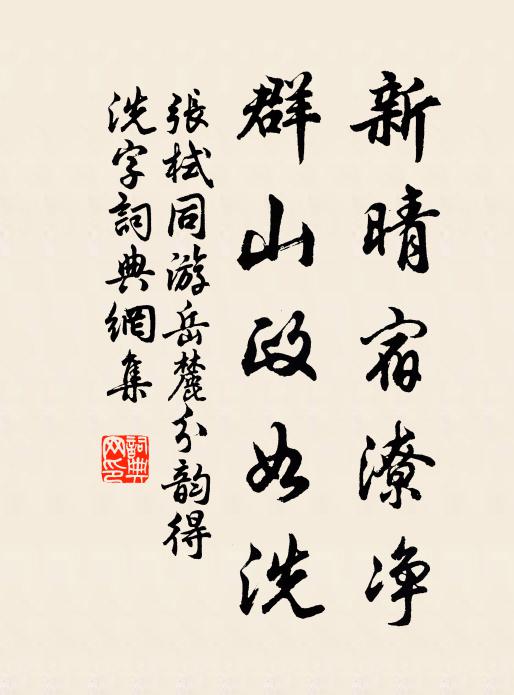 新晴宿潦净
群山政如洗
張栻同游岳麓分韵得
洗字詞典網集
詞典网印